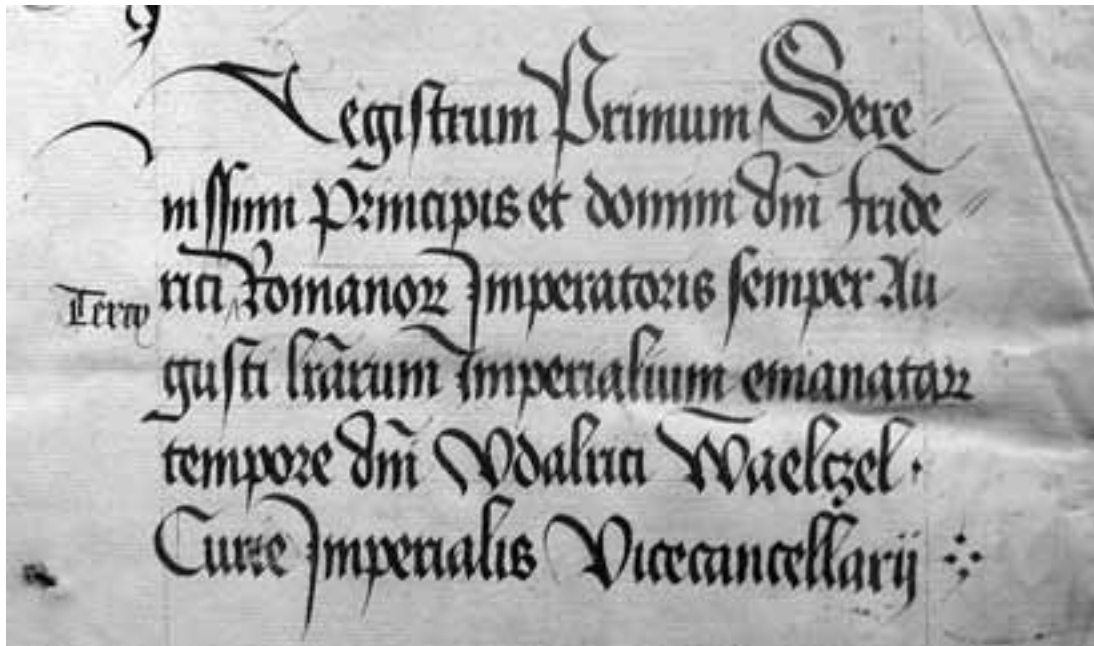 Registrum Primum Sere-
nissimi Principis et domini dñi fride-
Tercij
rici Romanoꝝ Imperatoris semper Au-
gusti lr̄arum Imperialium emanatoꝝ
tempore dñi Vdalrici Waeltzel.
Curie Imperialis Vicecancellarij